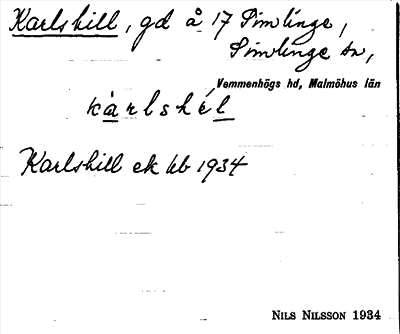 Karlshill, gd å 17 Simlinge,
Simlinge sn,
Vemmenhögs hd, Malmöhus län
kàrlshél
Karlshill ek kb 1934
NILS NILSSON 1934